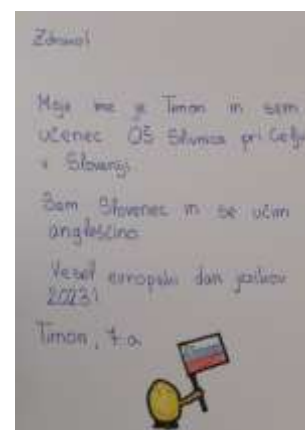 Zdravo!
Moje ime je Timon in sem
učenec OŠ Slivnica pri Celju
v Sloveniji.
Sem Slovenec in se učim
angleščino.
Vesel evropski dan jezikov
2023!
Timon, 7.a